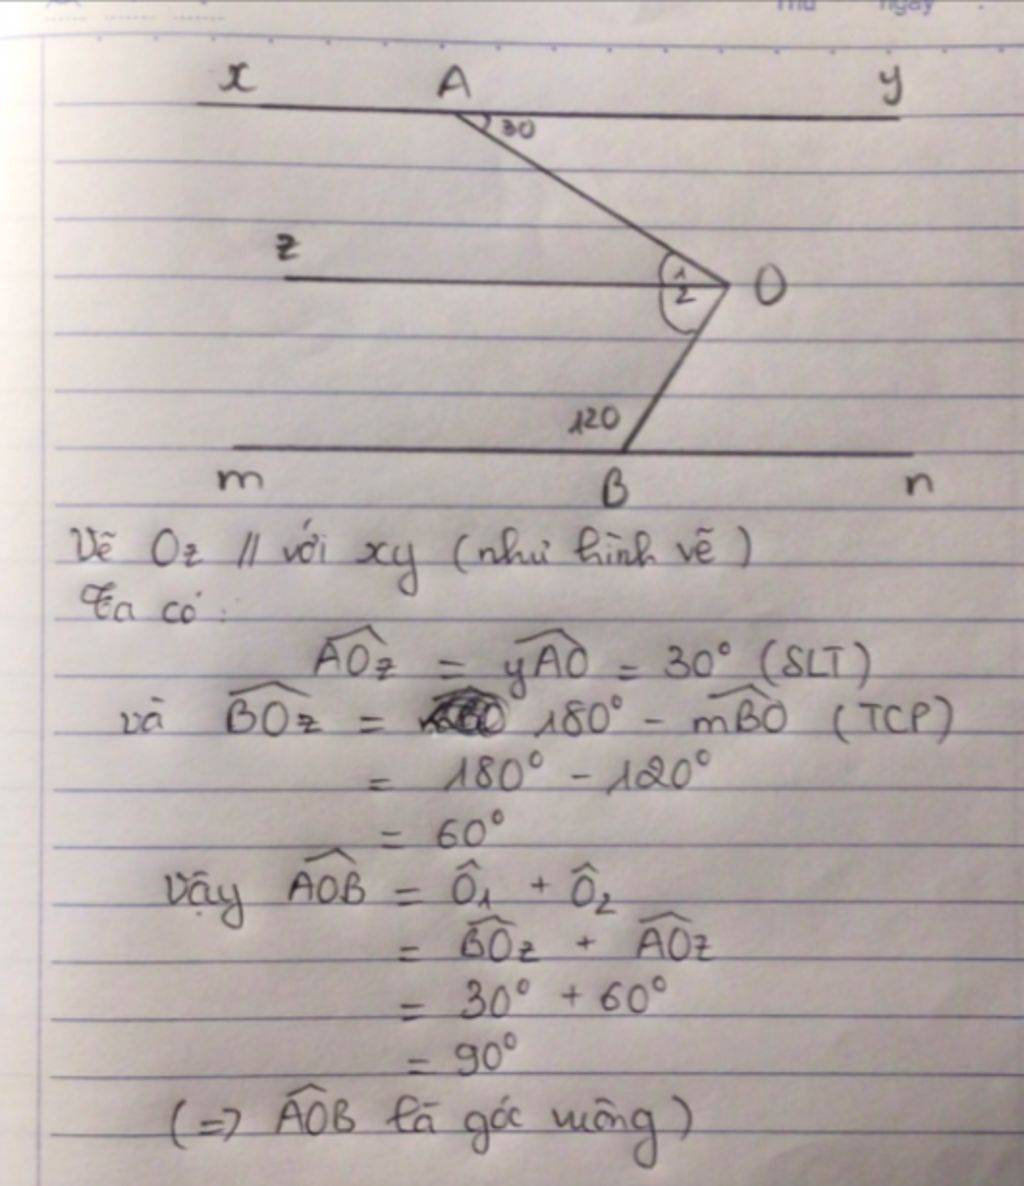 Thứ ngày
x A y
30
z
1
2
O
120
m B n
Vẽ Oz // với xy (như hình vẽ)
Ta có:
$\widehat{AOz}$ = $\widehat{yAO}$ = 30° (SLT)
và $\widehat{BOz}$ = 180° - $\widehat{mBO}$ (TCP)
= 180° - 120°
= 60°
Vậy $\widehat{AOB}$ = $\hat{O}_1$ + $\hat{O}_2$
= $\widehat{BOz}$ + $\widehat{AOz}$
= 30° + 60°
= 90°
(=> $\widehat{AOB}$ là góc vuông)